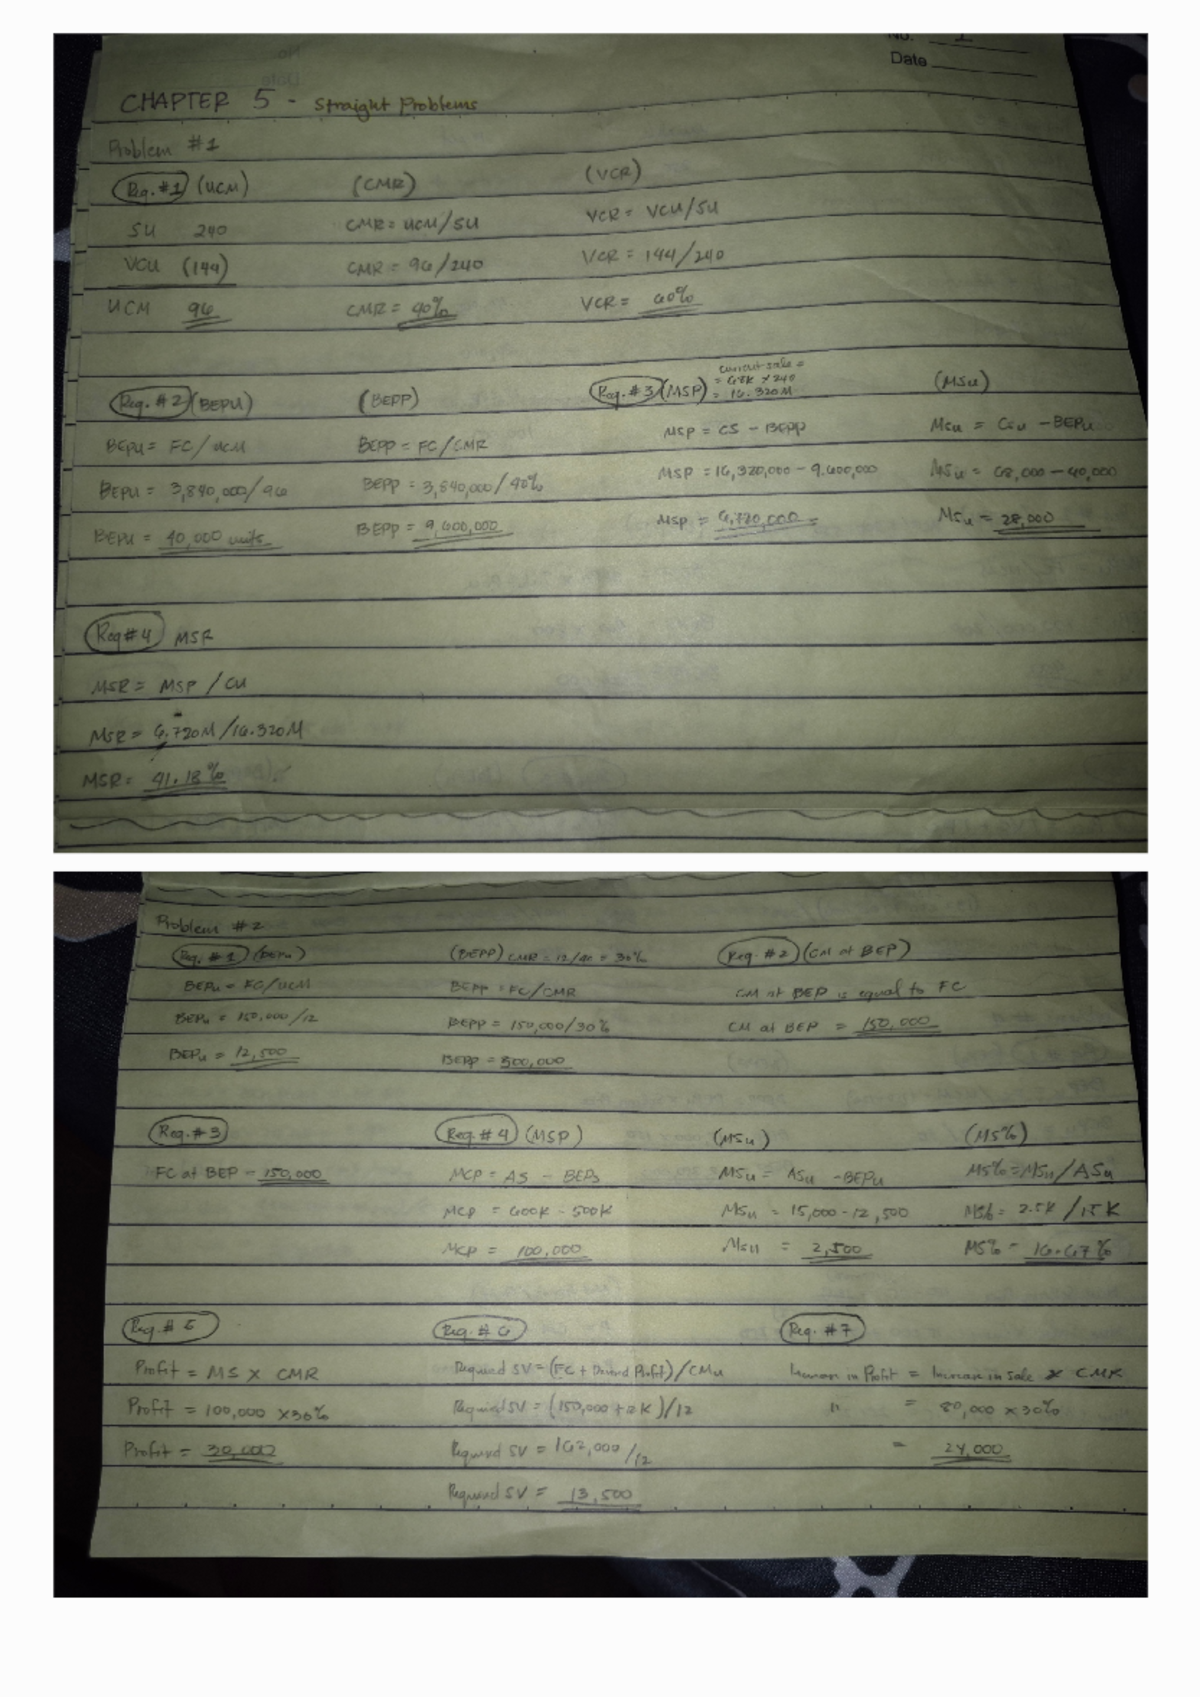 No. 1
Date
CHAPTER 5 - Straight Problems
Problem #1
Req. #1 (UCM) (CMR) (VCR)
SU 240 CMR = UCM/SU VCR = VCU/SU
VCU (144) CMR = 96/240 VCR = 144/240
UCM 96 CMR = 40% VCR = 60%
current sale =
= 68K x 240
= 16.320M
Req. #2 (BEPU) (BEPP) Req. #3 (MSP) (MSu)
BEPU = FC/UCM BEPP = FC/CMR MSP = CS - BEPP MSu = CSu - BEPu
BEPU = 3,840,000/96 BEPP = 3,840,000/40% MSP = 16,320,000 - 9,600,000 MSu = 68,000 - 40,000
BEPU = 40,000 units BEPP = 9,600,000 MSP = 6,720,000 MSu = 28,000
Req #4 MSR
MSR = MSP / CU
MSR = 6.720M/16.320M
MSR = 41.18%
Problem #2
Req. #1 (BEPu) (BEPP) CMR = 12/40 = 30% Req. #2 (CM at BEP)
BEPu = FC/UCM BEPP = FC/CMR CM at BEP is equal to FC
BEPu = 150,000/12 BEPP = 150,000/30% CM at BEP = 150,000
BEPu = 12,500 BEPP = 500,000
Req. #3 Req. #4 (MSP) (MSu) (MS%)
FC at BEP = 150,000 MCP = AS - BEPs MSu = ASu - BEPu MS% = MSu/ASu
MCP = 600K - 500K MSu = 15,000 - 12,500 MS% = 2.5K/15K
MCP = 100,000 MSu = 2,500 MS% = 16.67%
Req. #5 Req. #6 Req. #7
Profit = MS X CMR Required SV = (FC + Desired Profit)/CMu Increase in Profit = Increase in sale x CMR
Profit = 100,000 x 30% Required SV = (150,000 + 12K)/12 " = 80,000 x 30%
Profit = 30,000 Required SV = 162,000/12 = 24,000
Required SV = 13,500